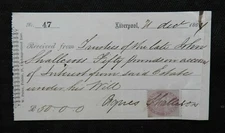 No. 47 Liverpool, 21 Dec 1884
Received from Trustees of the late John
Shallcross Fifty pounds on account
of Interest from said Estate
under his Will
£50-0-0 Agnes